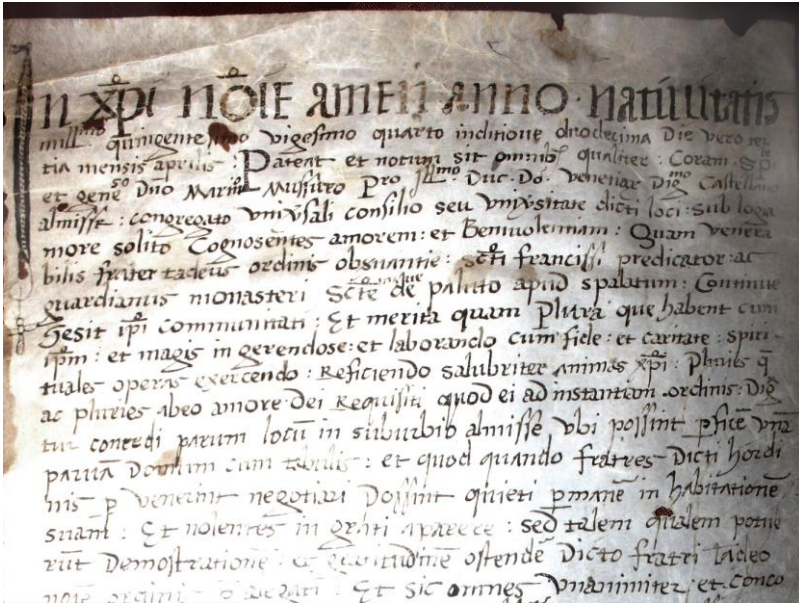 In xp̄i nōīe amen anno · nativitatis
mill^mo quingentesimo vigesimo quarto inditione duodecima Die vero ter
tia mensis aprilis : Pateat et notum sit omnib; qualiter : Coram · Sp̄
et gene^so Dn̄o Mari^no Mussuro Pro Ill^mo : Duc · Do · venetiar Dig^mo Castellano
almisse : congregato vniv̄sali consilio seu vniv̄sitate dicti loci : sub logia
more solito Cognosentes amorem : et Benivolentiam : Quam venera
bilis frater tadeus ordinis obs̄vantie : sc̄ti francissi predicator : ac
guardianus monasteri Sc̄te de paluto apud spalatum : Continue
Gesit ip̄i communitati : Et merita quam Plura que habent cum
ip̄m : et magis in gerendose : et laborando cum fide : et caritate : spiri
tuales operas exercendo : Reficiendo salubriter animas xp̄i : Pluries q̄
ac pluries abeo amore Dei Requisiti quod ei ad instantiam · ordinis : Diḡ
tur concedi parum locū in suburbio almisse vbi possint p̄ficē vnā
parvā Domum cum tabulis : et quod quando fratres Dicti hordi
nis p̄ venerint negotiari Possint quieti p̄manē in habitationē
suam : Et nolentes in grati aparere : sed talem qualem potue
rūt Demostrationē : et gratitudinē ostendē Dicto fratri tadeo
nōīe ordinis : Et sic omnes vnanimiter : et conco